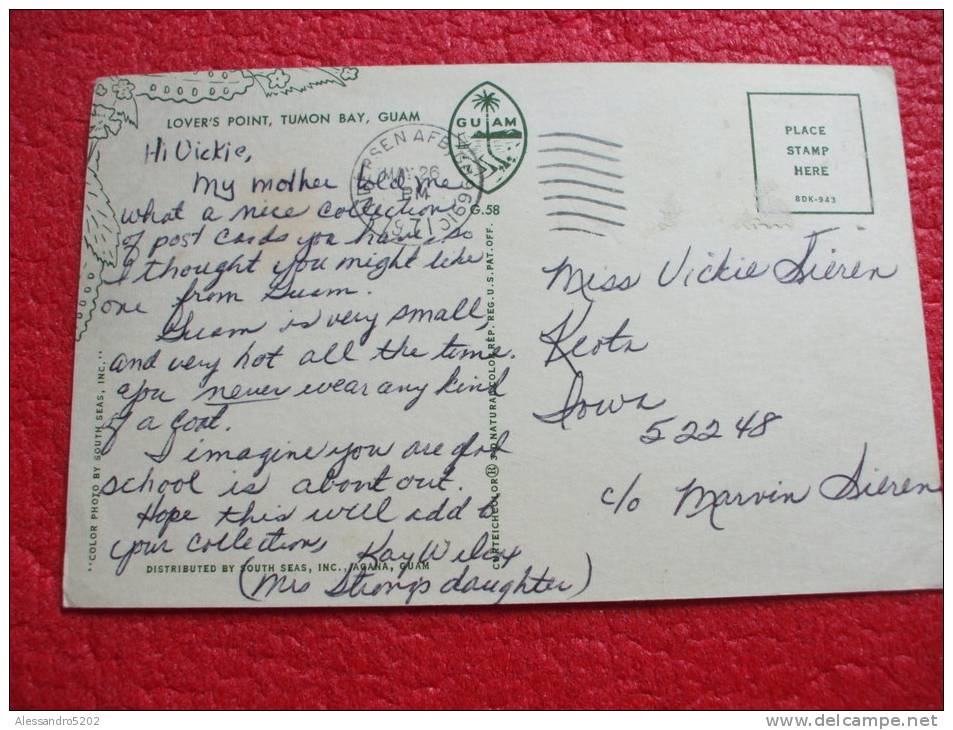 LOVER'S POINT, TUMON BAY, GUAM
Hi Vickie,
My mother told me
what a nice collection
of post cards you have, so
I thought you might like
one from Guam.
Guam is very small,
and very hot all the time.
You never wear any kind
of a coat.
I imagine you are glad
school is about out.
Hope this will add to
your collection,
Kay Wilcox
(Mrs Strong's daughter)
DISTRIBUTED BY SOUTH SEAS, INC., AGANA, GUAM
"COLOR PHOTO BY SOUTH SEAS, INC."
GUAM
G.58
SEN AFB
MAY 26
PM
1971
96912
CURTEICHCOLOR® 3-D NATURAL COLOR REP. REG. U.S. PAT. OFF.
PLACE
STAMP
HERE
8DK-943
Miss Vickie Sieren
Keota
Iowa
52248
c/o Marvin Sieren
Alessandro5202
www.delcampe.net